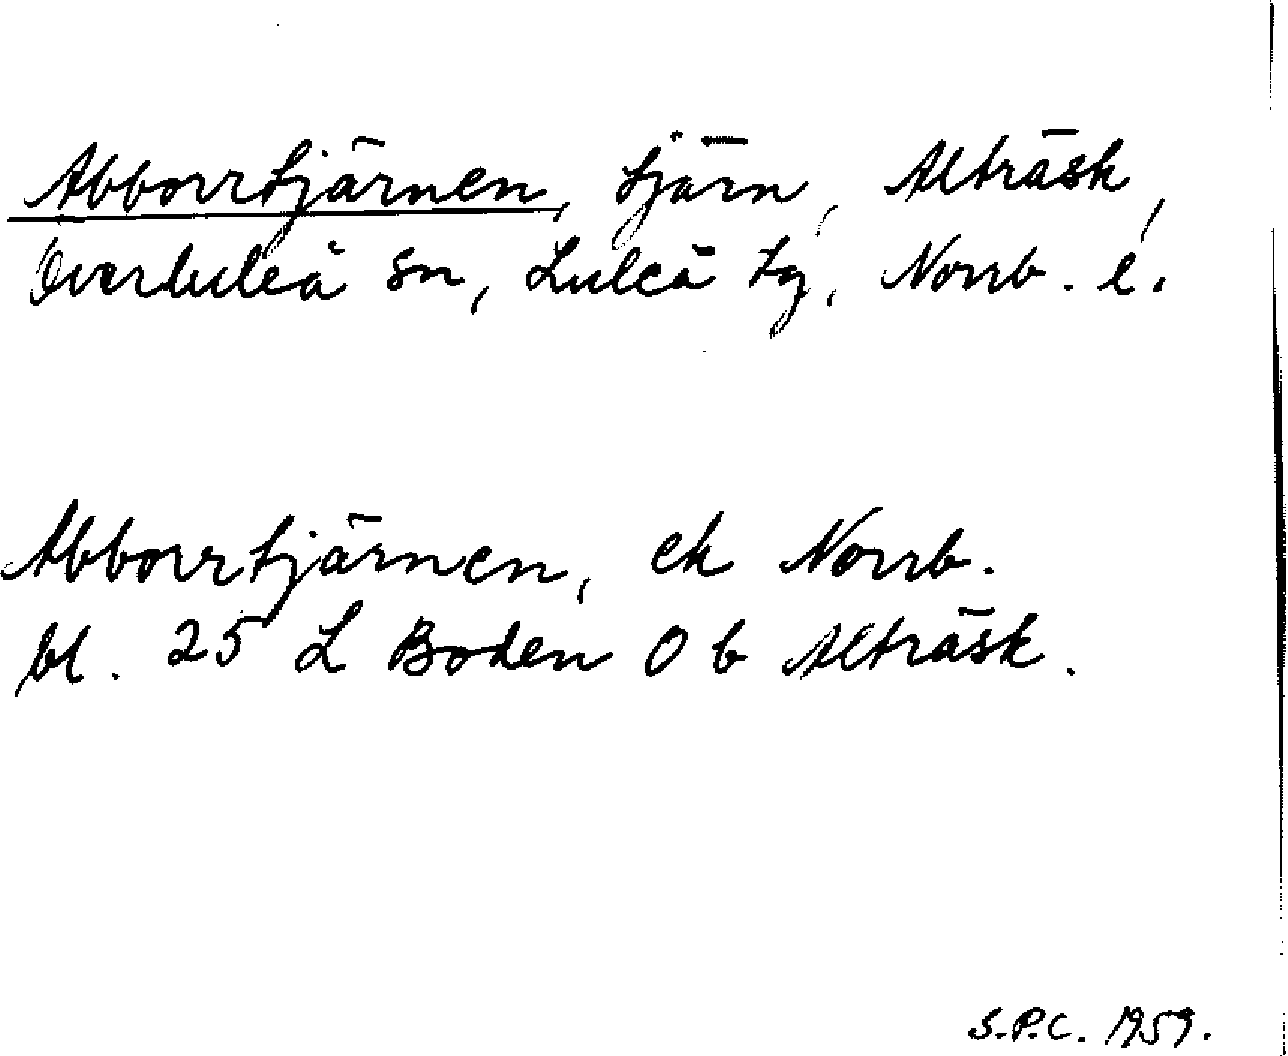 Abborrtjärnen, tjärn, Alträsk,
Överluleå sn, Luleå tg, Norrb. l.
Abborrtjärnen, ek Norrb.
bl. 25 L Boden O b Alträsk.
S.P.C. 1959.